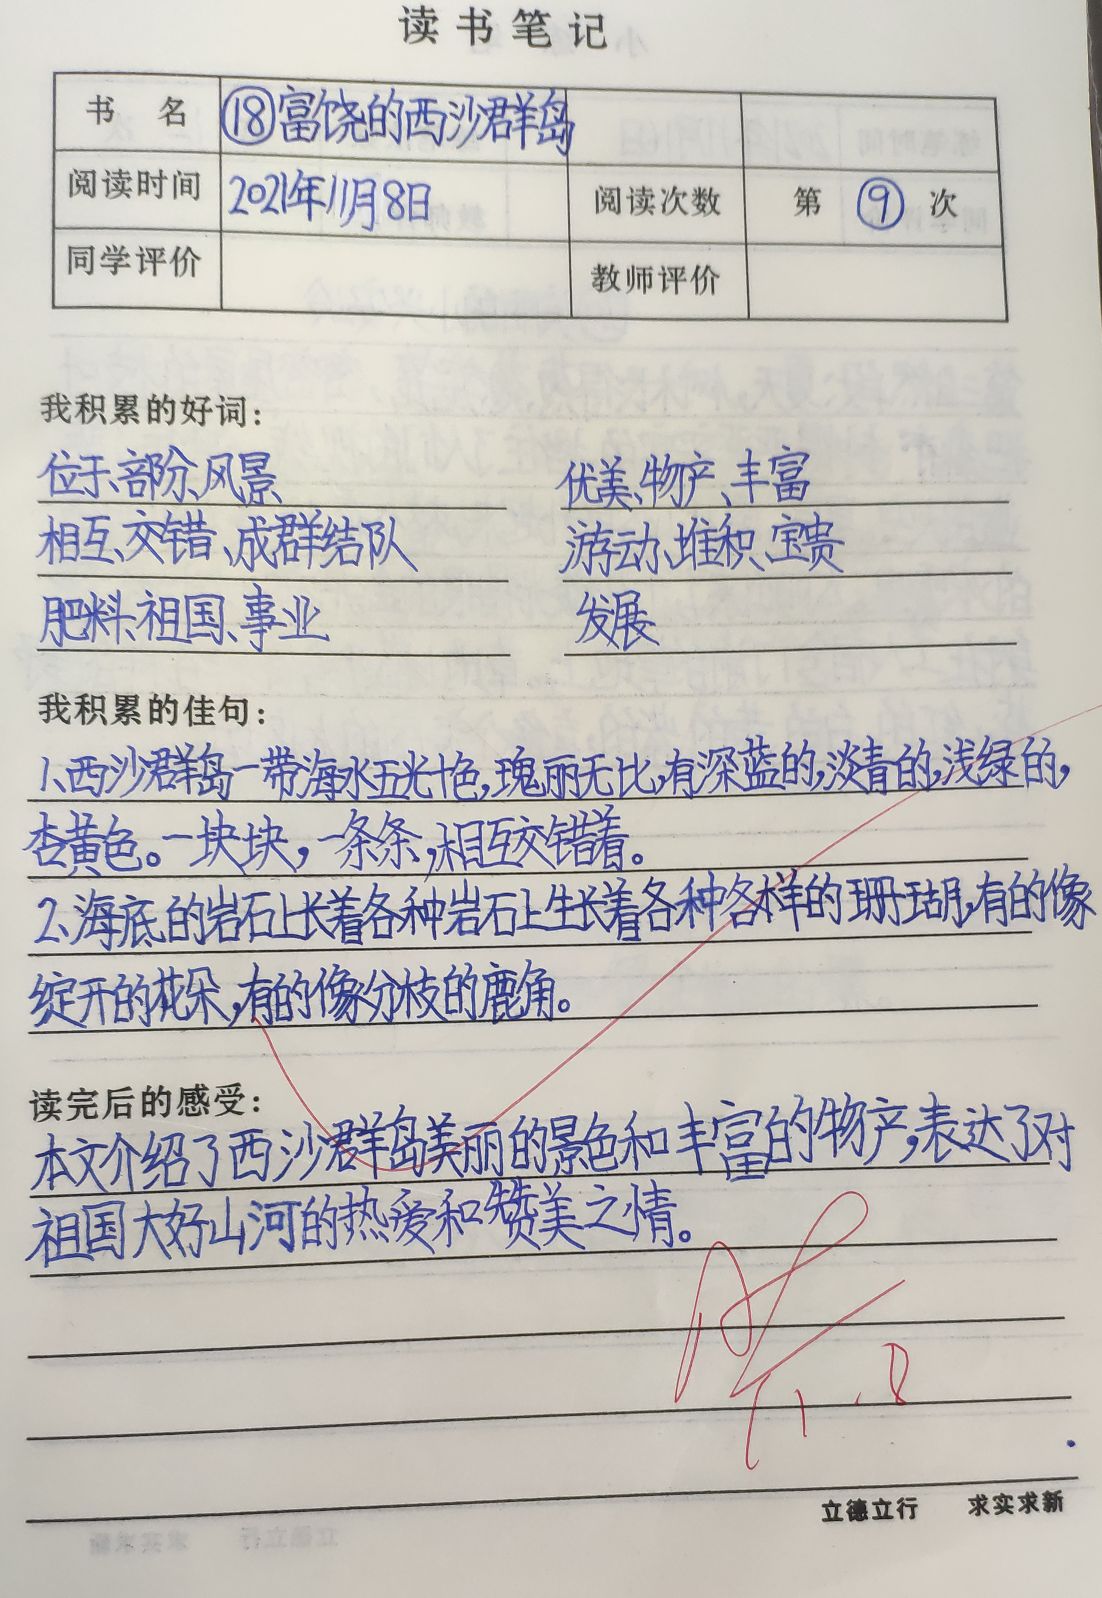 读书笔记
书 名 ⑱富饶的西沙群岛
阅读时间 2021年11月8日 阅读次数 第 ⑨ 次
同学评价 教师评价
我积累的好词：
位于、部分、风景 优美、物产、丰富
相互、交错、成群结队 游动、堆积、宝贵
肥料、祖国、事业 发展
我积累的佳句：
1、西沙群岛一带海水五光十色，瑰丽无比，有深蓝的，淡青的，浅绿的，
杏黄色。一块块，一条条，相互交错着。
2、海底的岩石上长着各种岩石上生长着各种各样的珊瑚，有的像
绽开的花朵，有的像分枝的鹿角。
读完后的感受：
本文介绍了西沙群岛美丽的景色和丰富的物产，表达了对
祖国大好山河的热爱和赞美之情。
11.8
立德立行 求实求新